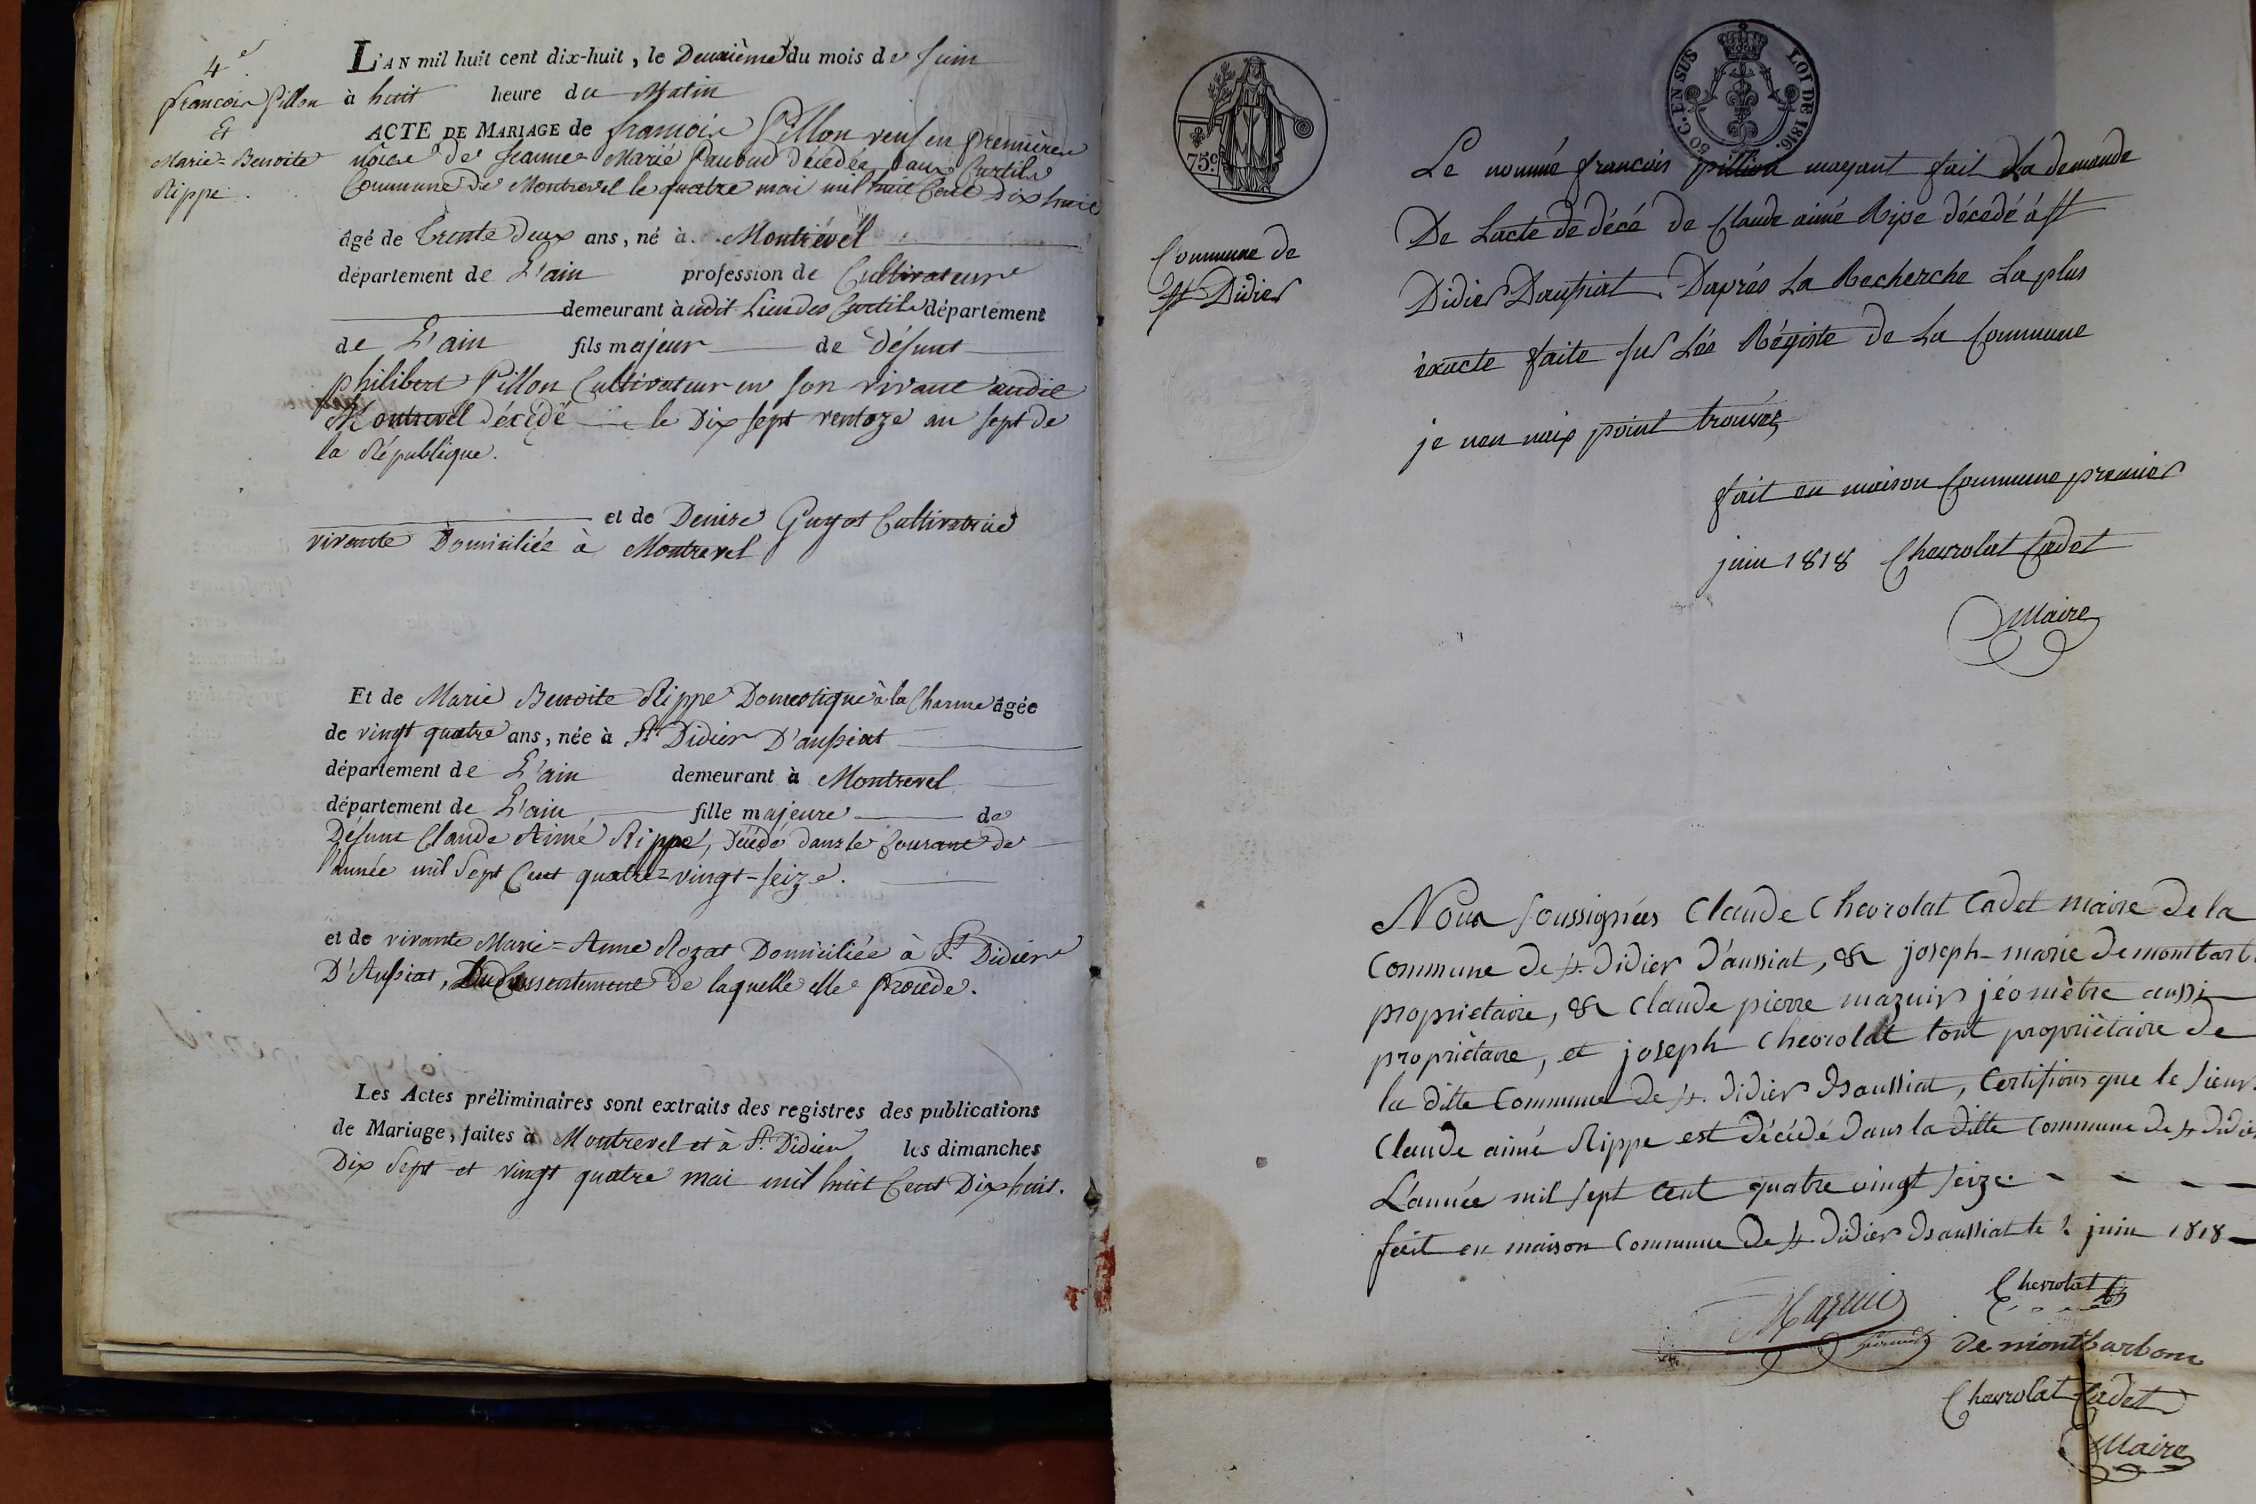 4e
francois Pillon
Et
Marie=Benoite
Rippe.
L'AN mil huit cent dix-huit, le Deuxième du mois de Juin
à huit heure du Matin
ACTE DE MARIAGE de francois Pillon veuf en Premières
nôces de Jeanne Marié décédée aux Curtils
Commune de Montrevel le quatre mai mil huit Cent Dix huit
âgé de Trente deux ans, né à Montrevel
département de L'ain profession de Cultivateur
demeurant à udit Lieu des Curtils département
de L'ain fils majeur de Défunt
Philibert Pillon Cultivateur en son vivant audit
Montrevel décédé le Dix sept ventoze an sept de
la République.
et de Denise Guyot Cultivatrice
vivante Domiciliée à Montrevel
Et de Marie Benoite Rippe Domestique à la Charme âgée
de vingt quatre ans, née à St Didier D'aussiat
département de L'ain demeurant à Montrevel
département de L'ain fille majeure de
Défunt Claude Aimé Rippe, Décédé dans le Courant de
l'année mil Sept Cent quatre=vingt-seize.
et de vivante Marie=Anne Rozat Domiciliée à St Didier
D'Aussiat, Du Consentement de laquelle elle Procède.
Les Actes préliminaires sont extraits des registres des publications
de Mariage, faites à Montrevel et à St Didier les dimanches
Dix Sept et vingt quatre mai mil huit Cent Dix huit.
75c.
50 C. EN SUS LOI DE 1816.
Commune de
St Didier
Le nommé francois pillion mayant fait La demande
De Lacte de décé de Claude aimé Ripe décedé á St
Didier Daussiat. Daprés La Recherche La plus
éxacte faite sur Lés Régiste de La Commune
je nen naix point trouvéz
fait en maison Commune premier
juin 1818 Chevrolat Cadet
Maire
Nous soussignées Claude Chevrolat Cadet maire de la
Commune de St. Didier d'aussiat, & joseph-marie Demontbarb
propriétaire, & Claude pierre mazuir jéomètre aussi
propriètaire, et joseph Chevrolat tout propriètaire de
la ditte Commune de St. Didier Daussiat, Certifions que le sieur
Claude aimé Rippe est décédé dans la ditte Commune de St Didier
L'année mil sept Cent quatre vingt seize
fait en maison Commune de St Didier Daussiat le 2 juin 1818
Chevrolat
Mazuir
de montbarbon
Chevrolat Cadet
Maire